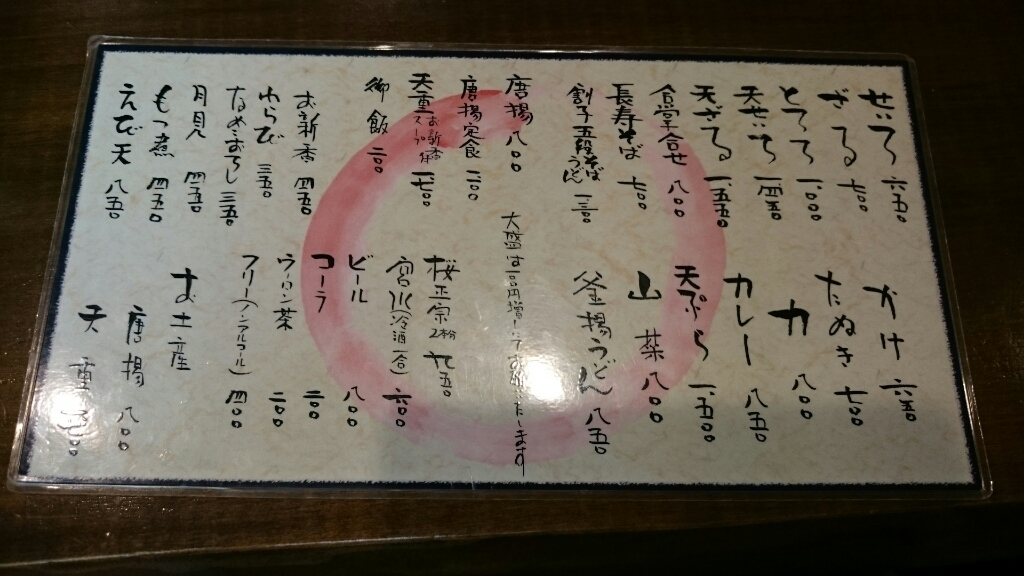 せいろ 六五〇
ざる 七〇〇
とろろ 一、〇〇〇
天せいろ 一、四五〇
天ざる 一、五五〇
合せ 八〇〇
長寿そば 七〇〇
割子五段そばうどん
唐揚 八〇〇
唐揚定食
天重 お新香スープ付
御飯 二〇〇
お新香 四五〇
わらび 三五〇
なめこおろし 三五〇
月見 四五〇
もつ煮 四五〇
えび天 八五〇
かけ 六五〇
たぬき 七〇〇
力 八〇〇
カレー 八五〇
天ぷら 一、五〇〇
山菜 八〇〇
釜揚うどん 八五〇
大盛は二〇〇円増しにてお願いたします
桜正宗 2勺 九五〇
宮水(冷酒一合) 六〇〇
ビール 八〇〇
コーラ 二〇〇
ウーロン茶 二〇〇
フリー(ノンアルコール) 四〇〇
お土産
唐揚 八〇〇
天重